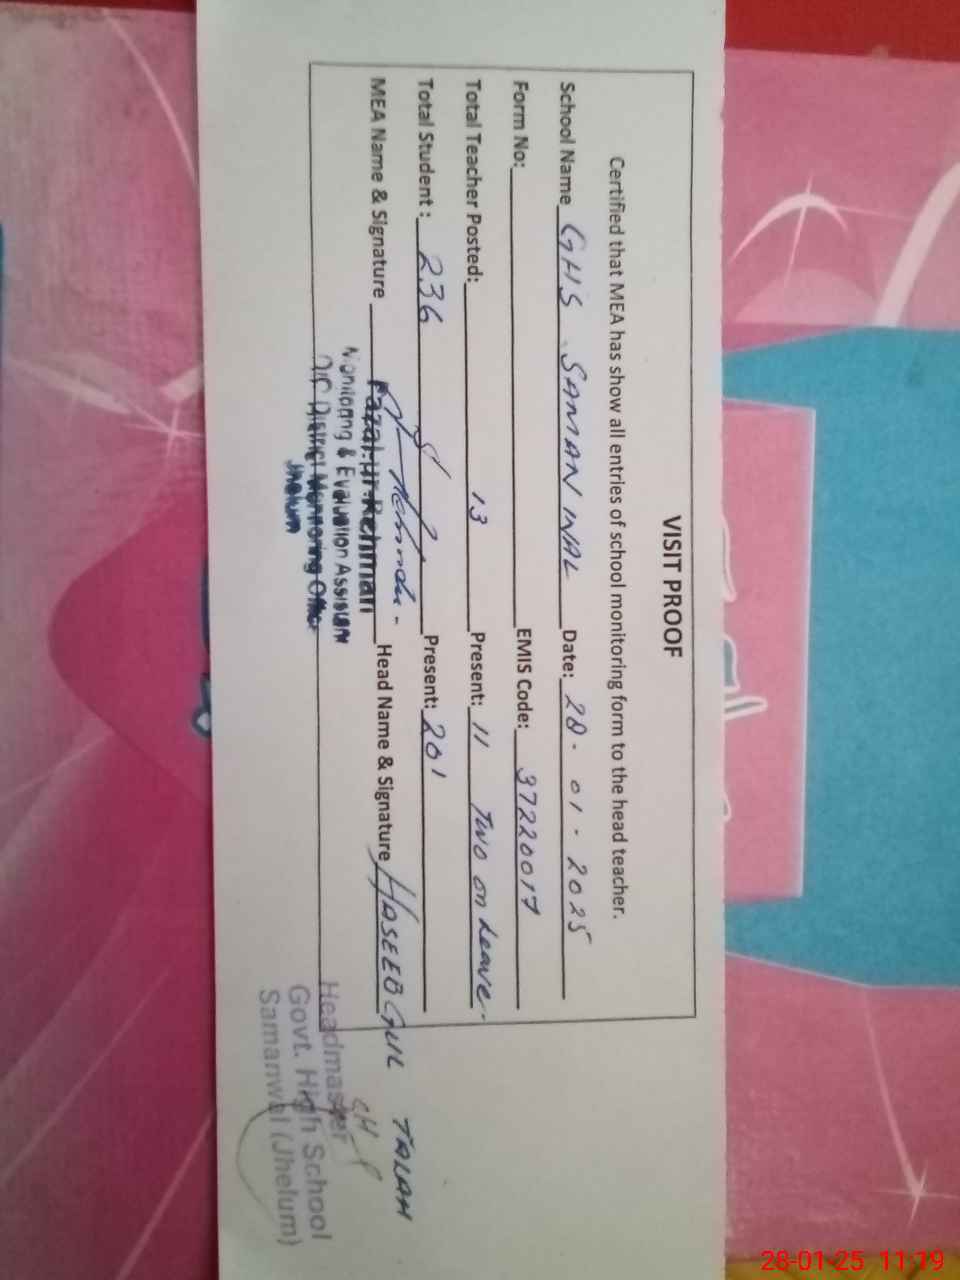 VISIT PROOF
Certified that MEA has show all entries of school monitoring form to the head teacher.
School Name GHS SAMANWAL Date: 28-01-2025
Form No: EMIS Code: 37220017
Total Teacher Posted: 13 Present: 11 Two on Leave.
Total Student : 236 Present: 201
MEA Name & Signature Fazal-Ur-Rehman Head Name & Signature HASEEB GUL TALAH
Monitoring & Evaluation Assistant
O/O District Monitoring Office
Jhelum
Headmaster
Govt. High School
Samanwal (Jhelum)
28-01-25 11:19